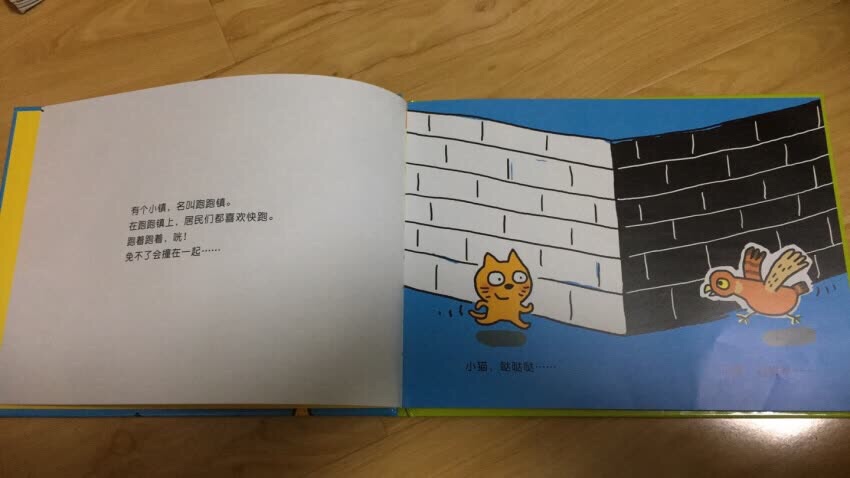 有个小镇，名叫跑跑镇。
在跑跑镇上，居民们都喜欢快跑。
跑着跑着，咣！
免不了会撞在一起……
小猫，哒哒哒……